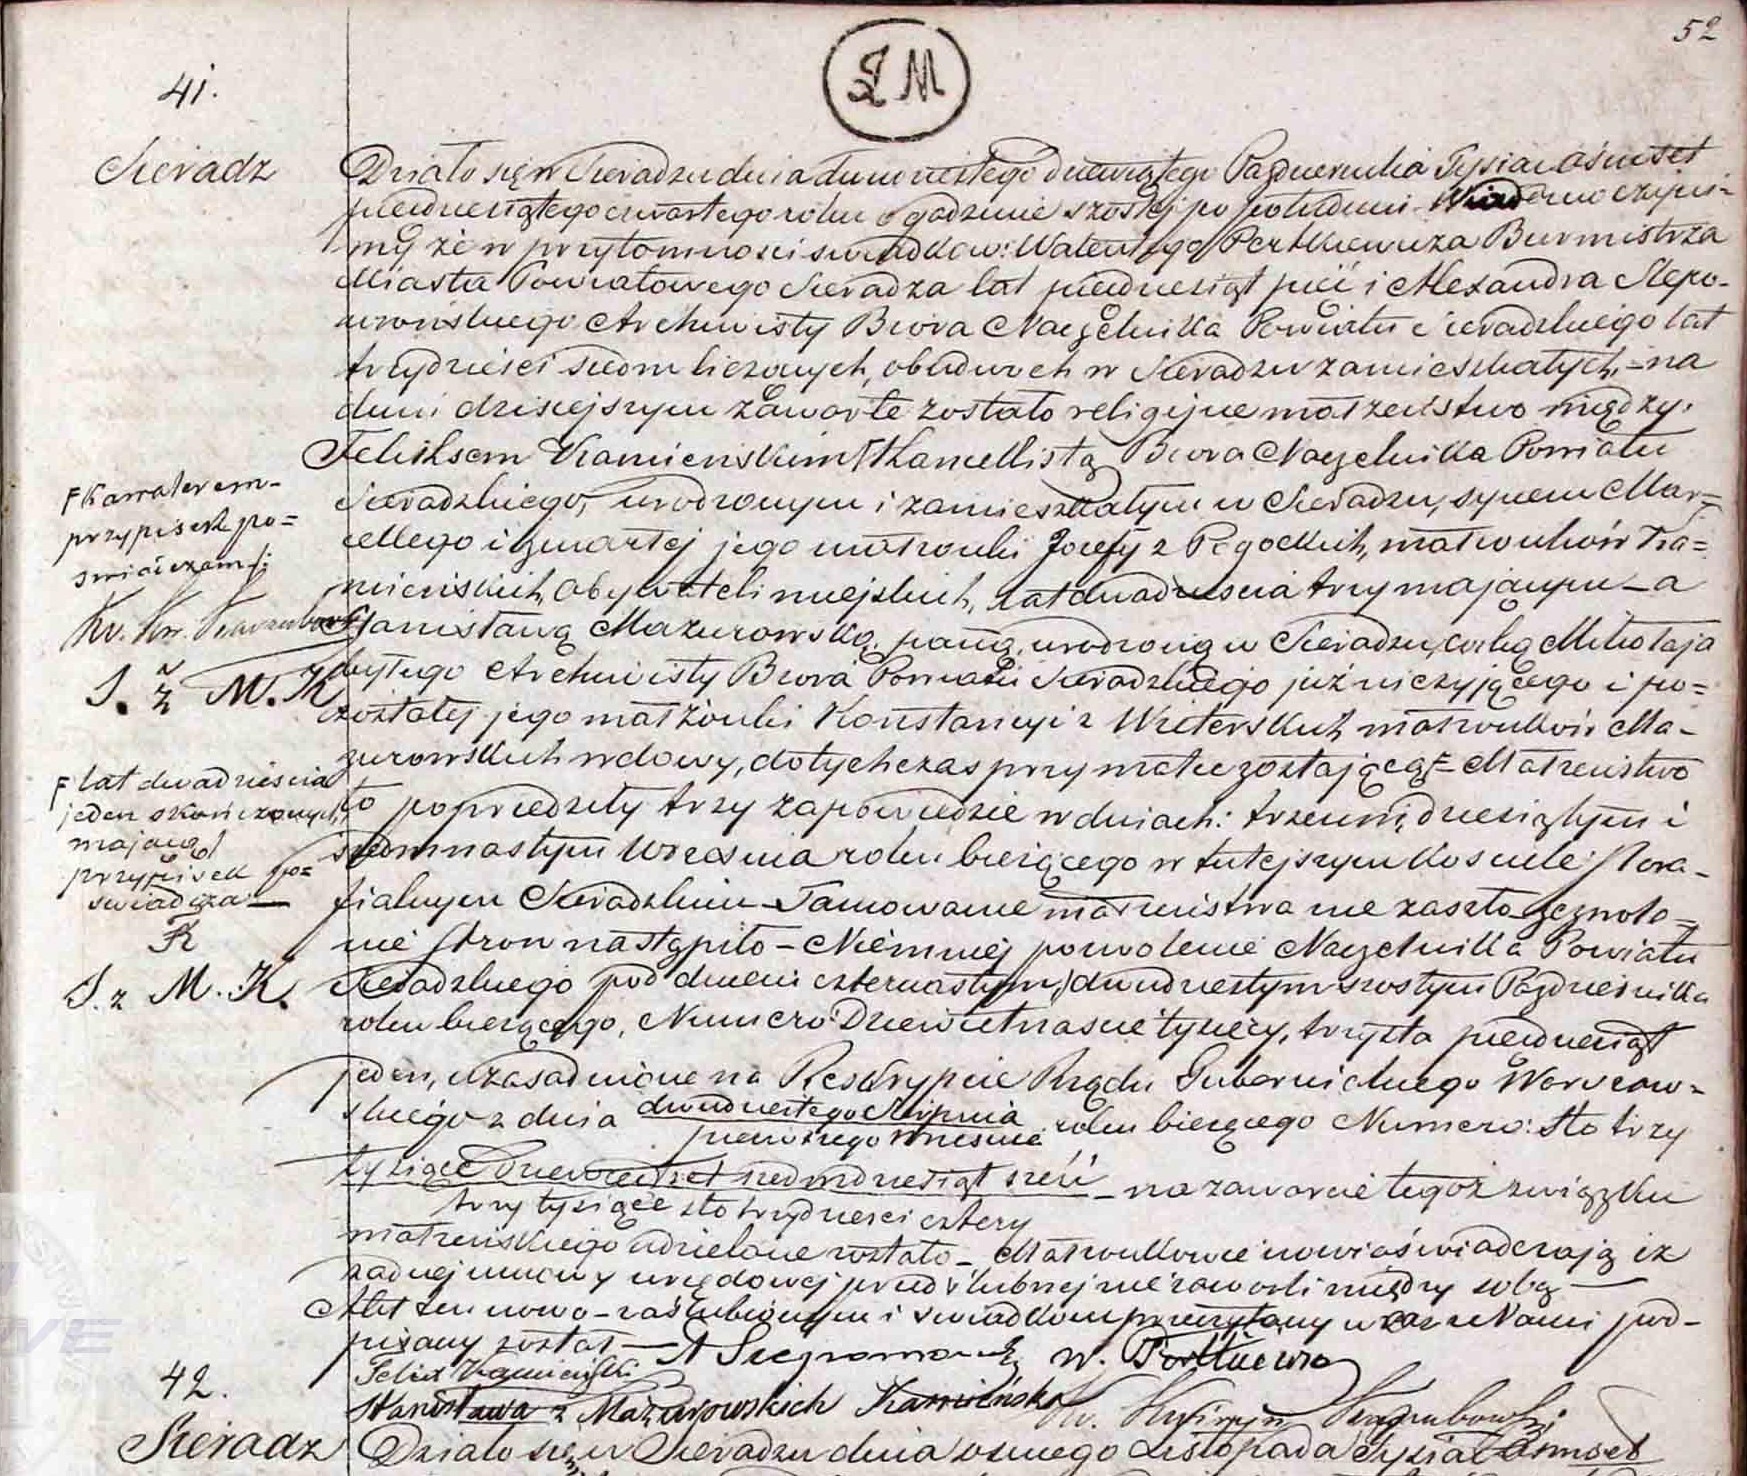 52
S M
41.
Sieradz
Działo się w Sieradzu dnia dwudziestego dziewiątego Października Tysiąc ośmset
piędziesiątego czwartego roku o godzinie szóstej po południu. Wiadomo czyni-
my że w przytomności świadków: Walentego Pertkiewicza Burmistrza
Miasta Powiatowego Sieradza lat piędziesiąt pięć i Alexandra Slepo-
wrońskiego Archiwisty Biora Naczelnika Powiatu Sieradzkiego lat
trzydzieści siedm liczących, obudwóch w Sieradzu zamieszkałych, – na
dniu dzisiejszym zawarte zostało religijne małżeństwo między
Feliksem Kamieńskim F Kancellistą Biora Naczelnika Powiatu
Sieradzkiego, urodzonym i zamieszkałym w Sieradzu, synem Mar=
cellego i zmarłej jego małżonki Józefy z Pągockich, małżonków Ka=
mieńskich, obywateli miejskich, lat dwadzieścia trzy mającym – a
Stanisławą Mazurowską, panną, urodzoną w Sieradzu, córką Mikołaja
byłego Archiwisty Biora Powiatu Sieradzkiego już nieżyjącego i po=
zostałej jego małżonki Konstancyi z Witerskich małżonków Ma-
zurowskich wdowy, dotychczas przy matce zostającą F – Małżeństwo
to poprzedziły trzy zapowiedzie w dniach: trzecim, dziesiątym i
siedmnastym Września roku bieżącego w tutejszym kościele Para-
fialnym Sieradzkim – Tamowanie małżeństwa nie zaszło zezwole=
nie stron nastąpiło – Niemniej pozwolenie Naczelnika Powiatu
Sieradzkiego pod dniem czternastym/dwudziestym szóstym Października
roku bieżącego, Numero Dziewiętnaście tysięcy, trzysta piędziesiąt
jeden, uzasadnione na Reskrypcie Rządu Gubernialnego Warszaw-
skiego z dnia dwudziestego Sierpnia roku bieżącego Numero: sto trzy
pierwszego Września
tysiące dziewięćset siedmdziesiąt sześć – na zawarcie tegoż związku
trzy tysiące sto trzydzieści cztery
małżeńskiego udzielone zostało – Małżonkowie nowi oświadczają iż
żadnej umowy urzędowej przedślubnej nie zawarli między sobą –
Akt ten nowo-zaślubionym i świadkom przeczytany wraz z Nami pod-
pisany został –
W.
Felix Kamieński
Stanisława z Mazurowskich Kamińska
F Kawalerem-
przypisek po=
świadczamy:
J. Ż M. K
F lat dwadzieścia
jeden skończonych
mającą
przypisek po=
świadcza –
K
J. Ż M. K.
42.
Sieradz
Działo się w Sieradzu dnia ósmego Listopada Tysiąc ośmset